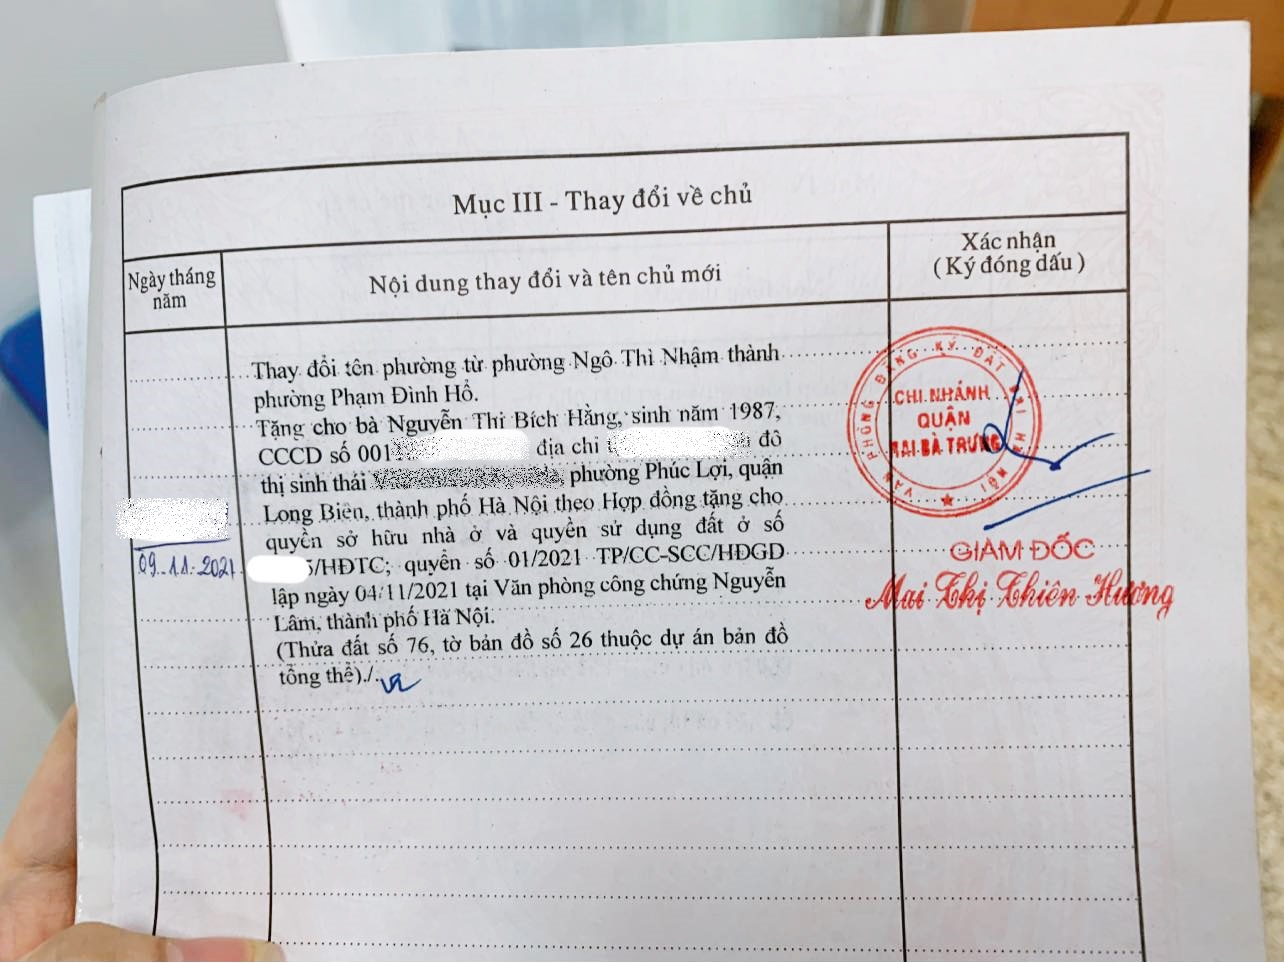 Mục III - Thay đổi về chủ
Ngày tháng
năm
Nội dung thay đổi và tên chủ mới
Xác nhận
( Ký đóng dấu )
Thay đổi tên phường từ phường Ngô Thì Nhậm thành
phường Phạm Đình Hổ.
Tặng cho bà Nguyễn Thị Bích Hằng, sinh năm 1987,
CCCD số 001 địa chỉ đô
thị sinh thái phường Phúc Lợi, quận
Long Biên, thành phố Hà Nội theo Hợp đồng tặng cho
quyền sở hữu nhà ở và quyền sử dụng đất ở số
/HĐTC; quyển số 01/2021 TP/CC-SCC/HĐGD
lập ngày 04/11/2021 tại Văn phòng công chứng Nguyễn
Lâm, thành phố Hà Nội.
(Thửa đất số 76, tờ bản đồ số 26 thuộc dự án bản đồ
tổng thể)./.
09.11.2021
VĂN PHÒNG ĐĂNG KÝ ĐẤT ĐAI HÀ NỘI
CHI NHÁNH
QUẬN
HAI BÀ TRƯNG
GIÁM ĐỐC
Mai Thị Thiên Hương